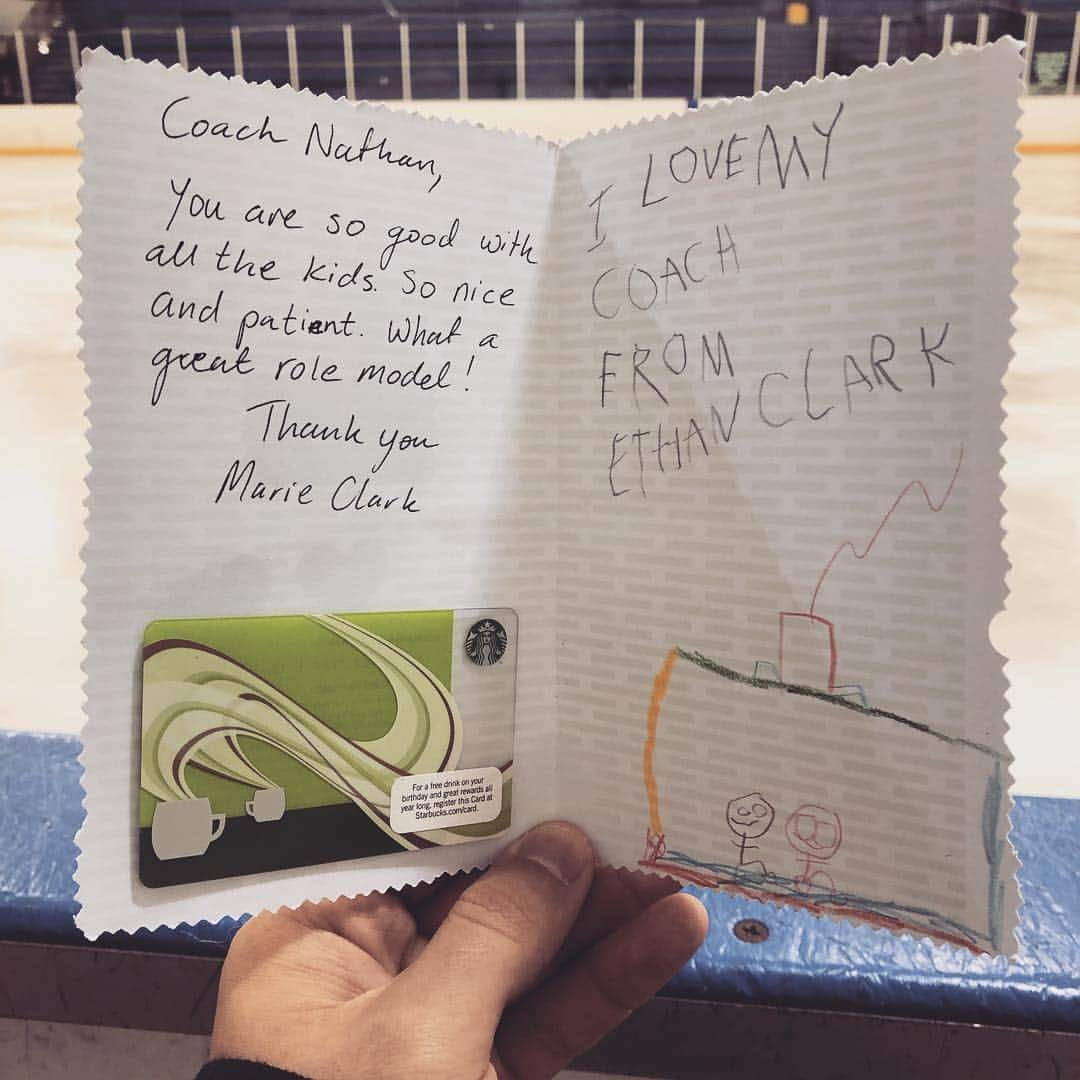 Coach Nathan,
You are so good with
all the kids. So nice
and patient. What a
great role model!
Thank you
Marie Clark
For a free drink on your
birthday and great rewards all
year long, register this Card at
Starbucks.com/card.
I LOVE MY
COACH
FROM
ETHAN CLARK